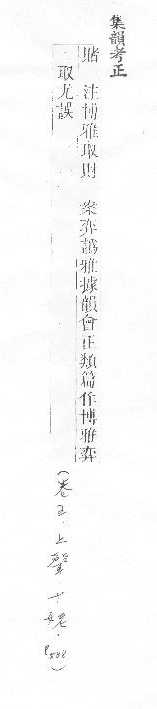 集韻考正
賭 注博雅取財 案弈譌雅據韻會正類篇作博雅弈
取尤誤
(卷五·上聲·十姥·P588)